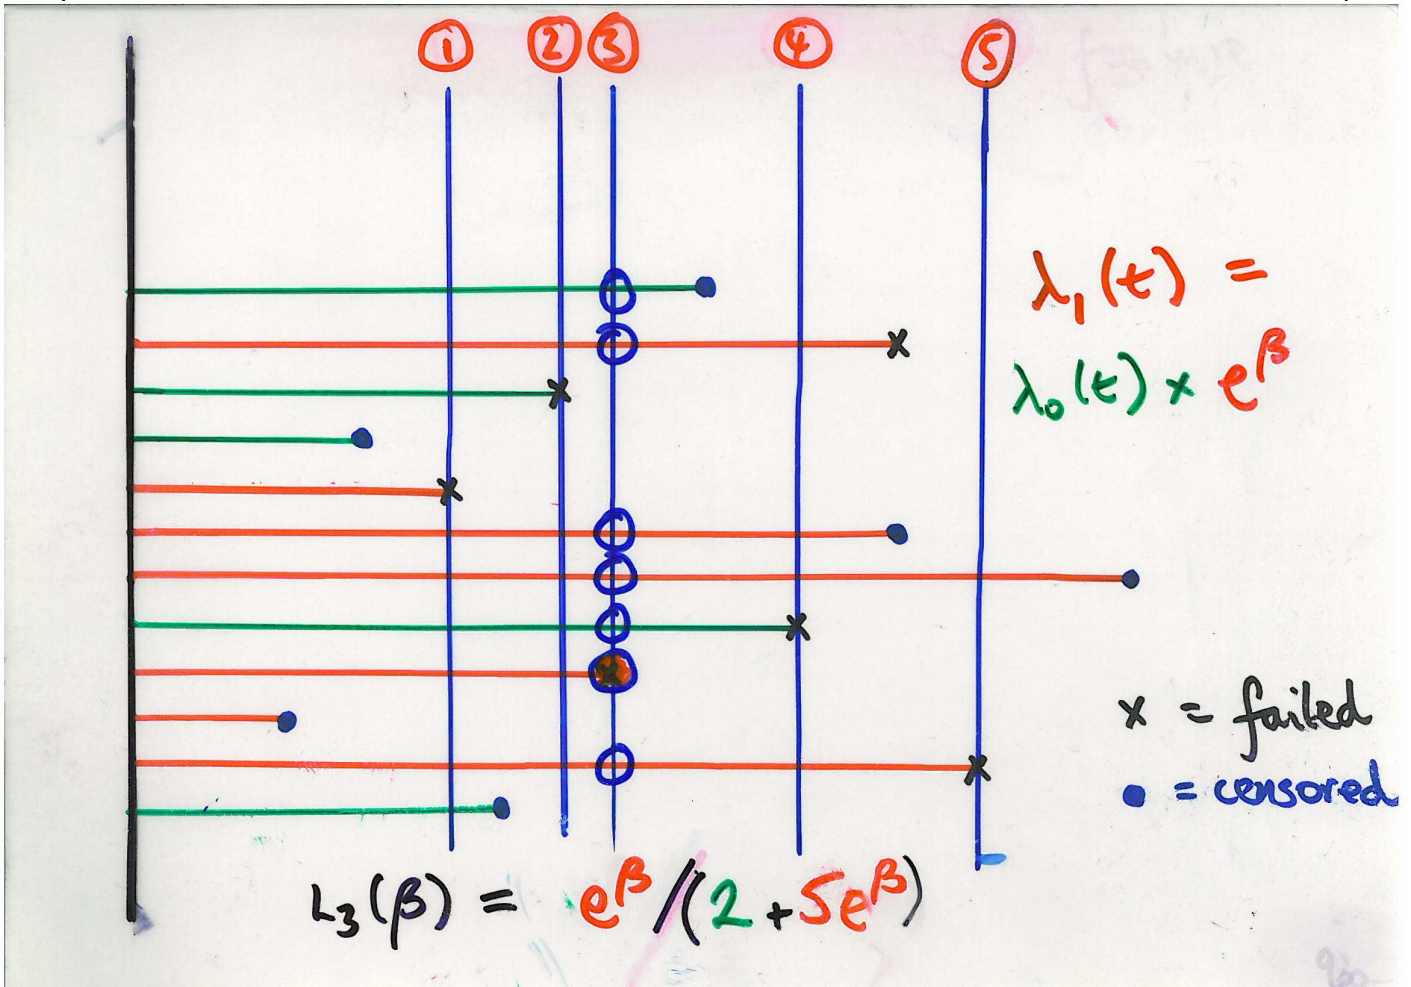 ① ② ③ ④ ⑤
λ₁(t) =
λ₀(t) × e^β
x = failed
• = censored
L₃(β) = e^β/(2 + 5e^β)